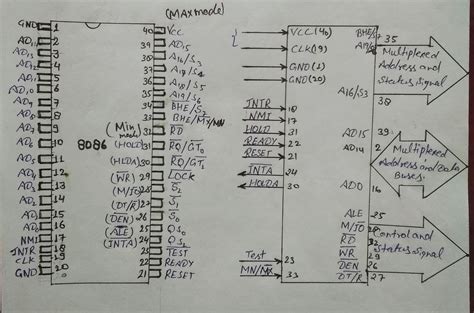 (MAX mode)
GND 1
40 VCC
AD14 2
39 AD15
AD13 3
38 A16/S3
AD12 4
37 A17/S4
AD11 5
36 A18/S5
AD10 6
35 A19/S6
AD9 7
34 BHE/S7
AD8 8
33 BHE/MX/MN
AD7 9
8086
(Min mode)
32 RD
AD6 10
(HOLD) 31 RQ/GT0
AD5 11
(HLDA) 30 RQ/GT1
AD4 12
(WR) 29 LOCK
AD3 13
(M/IO) 28 S2
AD2 14
(DT/R) 27 S1
AD1 15
(DEN) 26 S0
AD0 16
(ALE) 25 QS0
NMI 17
(INTA) 24 QS1
INTR 18
23 TEST
CLK 19
22 READY
GND 20
21 RESET
VCC (40)
CLK (19)
GND (1)
GND (20)
INTR 18
NMI 17
HOLD 31
READY 22
RESET 21
INTA 24
HOLDA 30
Test 23
MN/MX 33
BHE/S7
35
A16/S3
38
Multiplexed
Address and
Status signal
AD15 39
AD14 2
AD0 16
Multiplexed
Address and Data
Buses
ALE 25
M/IO 28
RD 32
WR 29
DEN 26
DT/R 27
Control and
Status signal